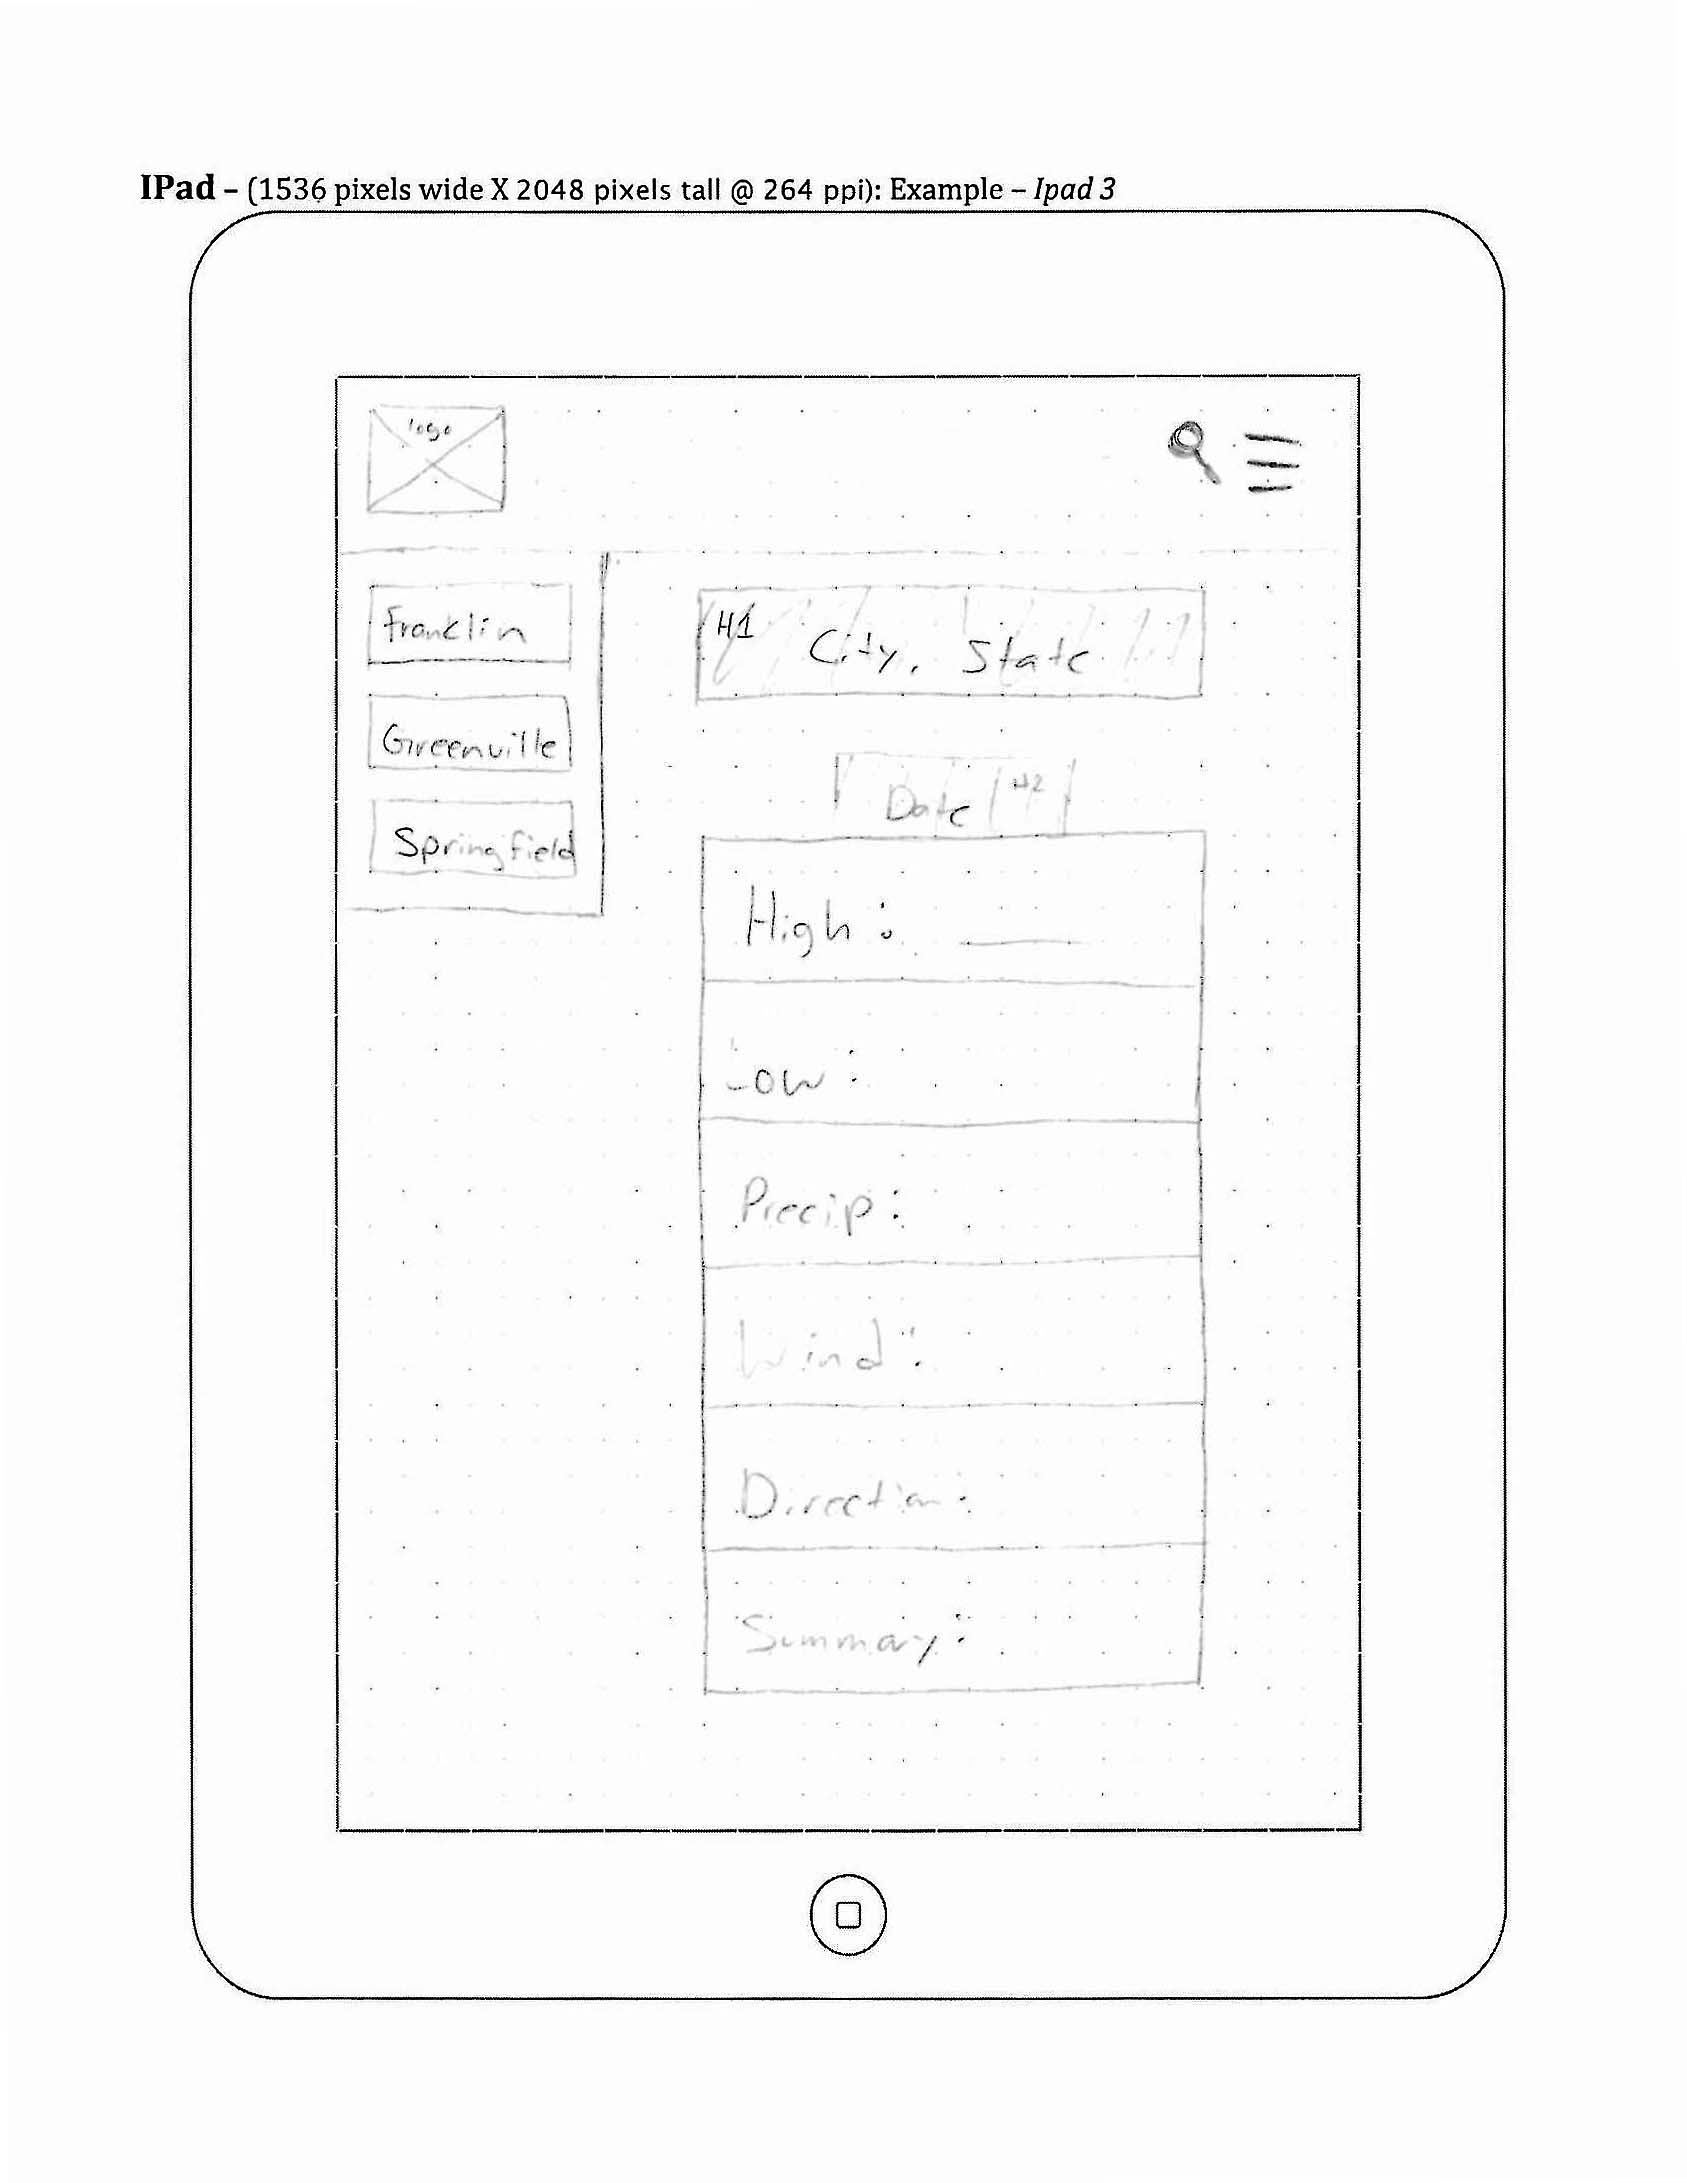 IPad – (1536 pixels wide X 2048 pixels tall @ 264 ppi): Example – Ipad 3
logo
Franklin
Greenville
Springfield
H1 City, State
Date H2
High:
Low:
Precip:
Wind:
Direction:
Summary: